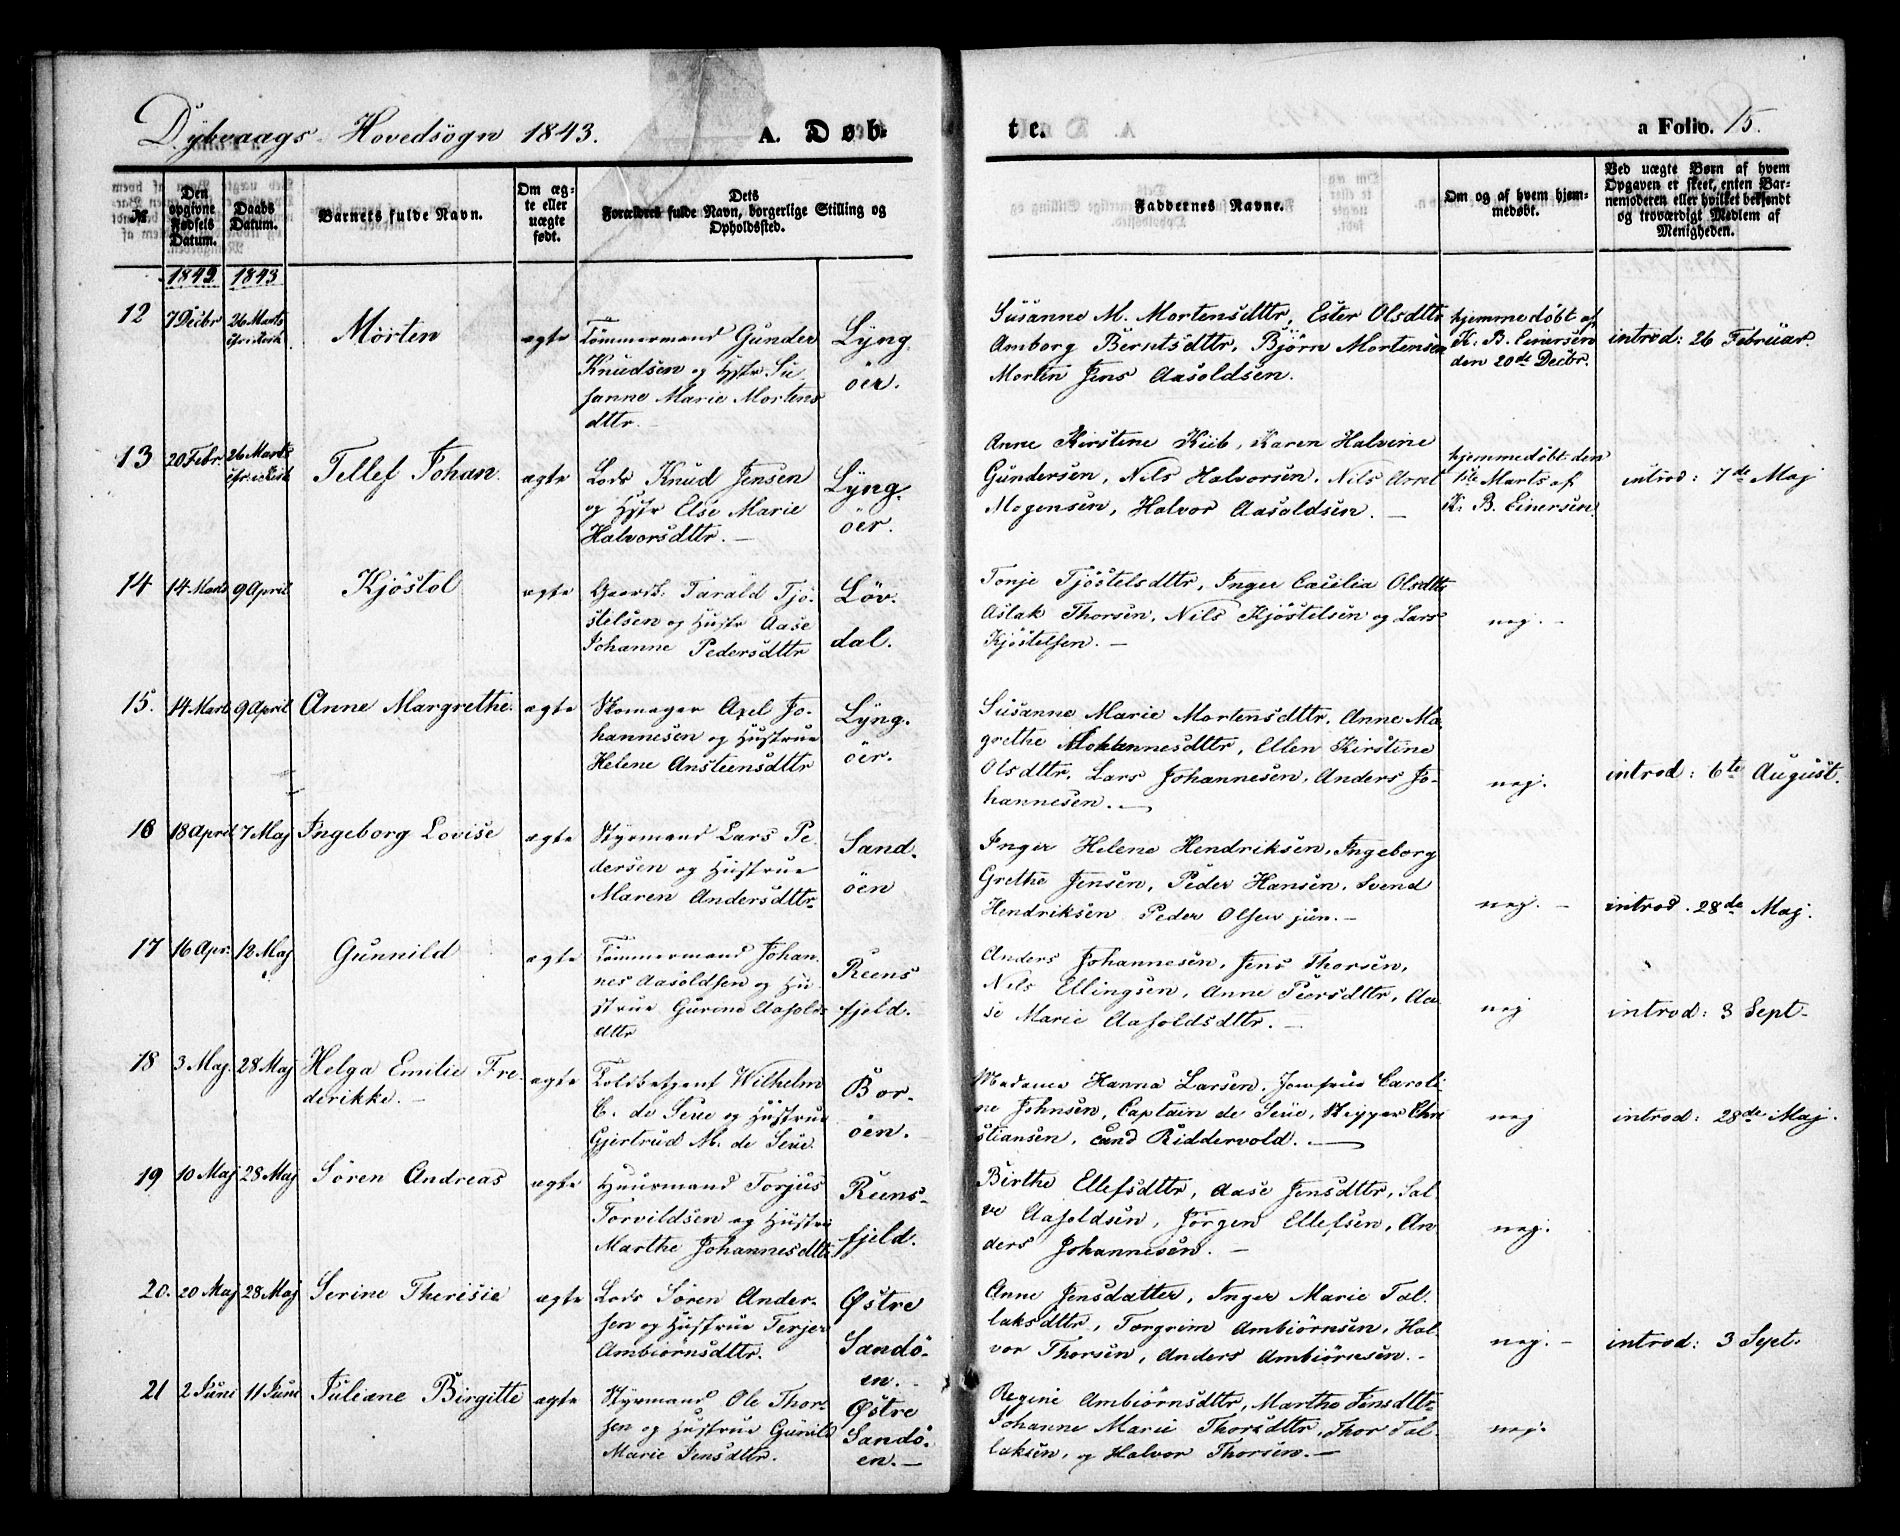 Dybvaags Hovedsogn 1843. A. Døb-
te. a Folio. 15.
№ Den opgivne Fødsels Datum. Daabs Datum. Barnets fulde Navn. Om ægte eller uægte født. Dets Forældres fulde Navn, borgerlige Stilling og Opholdssted. Faddernes Navne. Om og af hvem hjemmedøbt. Ved uægte Børn af hvem Opgaven er skeet, enten Barnemoderen eller hvilket bekjendt og troværdigt Medlem af Menigheden.
1842 1843
12 7 Decbr 26 Marts i friskirk Morten ægte Tömmermand Gunder
Knudsen og Hstr Su
sanne Marie Mortens
dttr. Lyng
öer.
Susanne M. Mortensdttr, Ester Olsdttr
Amborg Berntsdttr, Björn Mortensen
Morten Jens Aasoldsen.
hjemmedøbt af
K. B. Einersen
den 20de Decbr.
introd: 26 Februar.
13 20 Febr. 26 Marts Tellef Johan. ægte Lods Knud Jensen
og Hstr Else Marie
Halvorsdttr. Lyng.
öer.
Anne Kirstine Kiib, Karen Halvine
Gundersen, Nils Halvorsen, Nils Arnt
Mogensen, Halvor Aasoldsen.
hjemmedøbt den
1ste Marts af
K. B. Einersen
introd: 7de Maj
14 14 Marts 9 April Kjöstol ægte Gaardb. Tarald Tjö-
stelsen og Hustr Aase
Johanne Pedersdttr Löv.
dal.
Tonje Tjöstelsdttr, Inger Cecilia Olsdttr
Aslak Thorsen, Nils Kjöstelsen og Lars
Kjöstelsen.
nej.
15. 14 Marts 9 April Anne Margrethe. ægte Skomager Axel Jo-
hannesen og Hustrue
Helene Ansteensdttr Lyng.
öer.
Susanne Marie Mortensdttr, Anne Ma
grethe Johannesdttr, Ellen Kirstine
Olsdttr, Lars Johannesen, Anders Jo-
hannesen.
nej.
introd: 6te August.
16 18 April 7 Maj Ingeborg Lovise ægte Styrmand Lars Pe-
dersen og Hustrue
Maren Andersdttr Sand.
öen
Inger Helene Hendriksen, Ingeborg
Grethe Jensen, Peder Hansen, Svend
Hendriksen Peder Olsen jun.
nej.
introd. 28de Maj.
17 16 Apr. 12 Maj Gunnild ægte Tömmermand Johan
nes Aasoldsen og Hu
strue Gurine Aasolds
dttr Reens
fjeld.
Anders Johannesen, Jens Thorsen,
Nils Ellingsen, Anne Peersdttr, Aa
se Marie Aasoldsdttr.
nej
introd: 3 Sept
18 3 Maj. 28 Maj Helga Emilie Fre
derikke. ægte Toldbetjent Wilhelm
C. de Seue og Hustrue
Gjertrud M. de Seue. Bor-
öen.
Madame Hanna Larsen, Jomfrue Caroli
ne Johnsen, Captain de Seue, Skipper Chri
stiansen, Cand Riddervold.
nej
introd: 28de Maj.
19 10 Maj 28 Maj Sören Andreas ægte Huusmand Torjus
Torvildsen og Hustru
Marthe Johannesdttr Reens-
fjeld.
Birthe Ellefsdttr, Aase Jensdttr, Sal-
ve Aasoldsen, Jörgen Ellefsen, An
ders Johannesen.
nej.
20. 20 Maj 28 Maj Serine Theresie ægte Lods Sören Ander-
sen og Hustrue Terjer
Ambiörnsdttr. Østre
Sandö-
en.
Anne Jensdatter, Inger Marie Tal-
laksdttr, Torgrim Ambiörnsen, Hal-
vor Thorsen, Anders Ambiörnsen.
nej.
introd: 3 Sept.
21 2 Juni 11 Juni Juliane Birgitte ægte Styrmand Ole Thor-
sen og Hustrue Gunild
Marie Jensdttr. Østre
Sandö-
en.
Regine Ambiörnsdttr, Marthe Jensdttr
Johanne Marie Thorsdttr, Thor Tal-
laksen, og Halvor Thorsen.
nej.